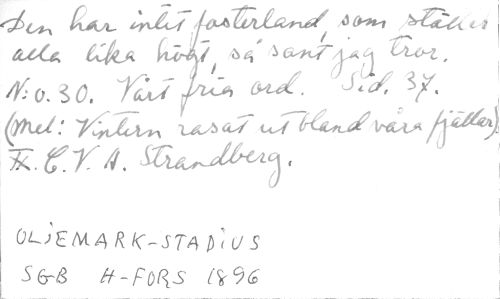 Den har intet fosterland, som ställer
alla lika högt, så sant jag tror.
N:o. 30. Vårt fria ord. Sid. 37.
(Mel: Vintern rasat ut bland våra fjällar).
C. V. A. Strandberg.
OLJEMARK-STADIUS
SGB H-FORS 1896